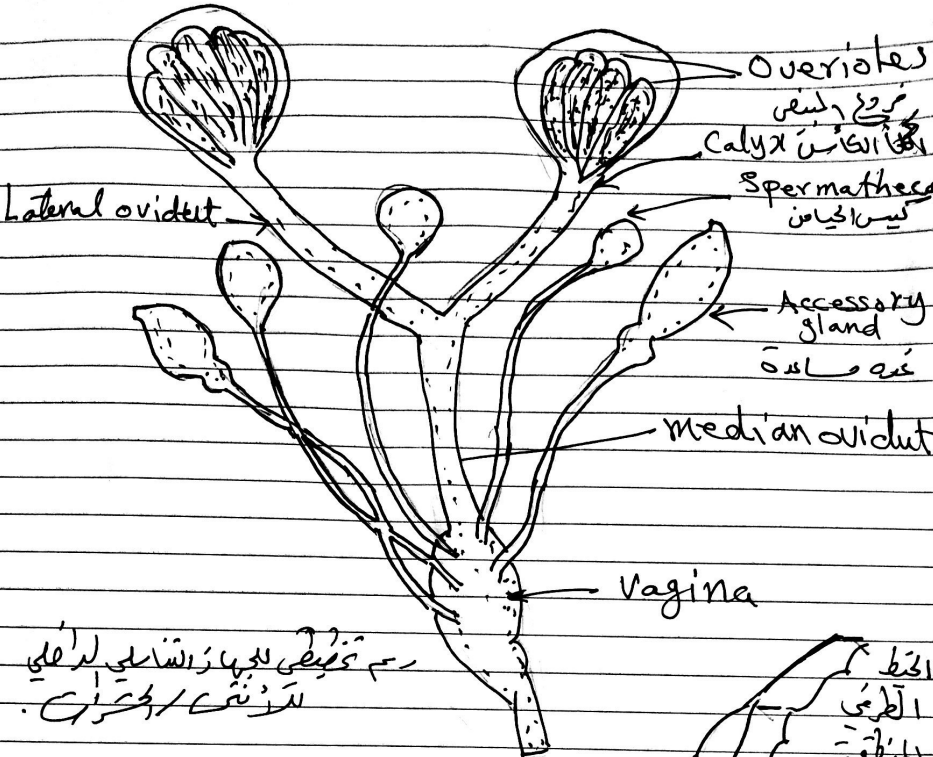 Overioles
فروع المبيض
Calyx الكأس
Spermatheca
Lateral ovidut
Accessory
gland
غده مساعدة
median ovidut
Vagina
رسم تخطيطي للجهاز التناسلي الداخلي
للأنثى / الحشرات.
الخيط
الطرفي